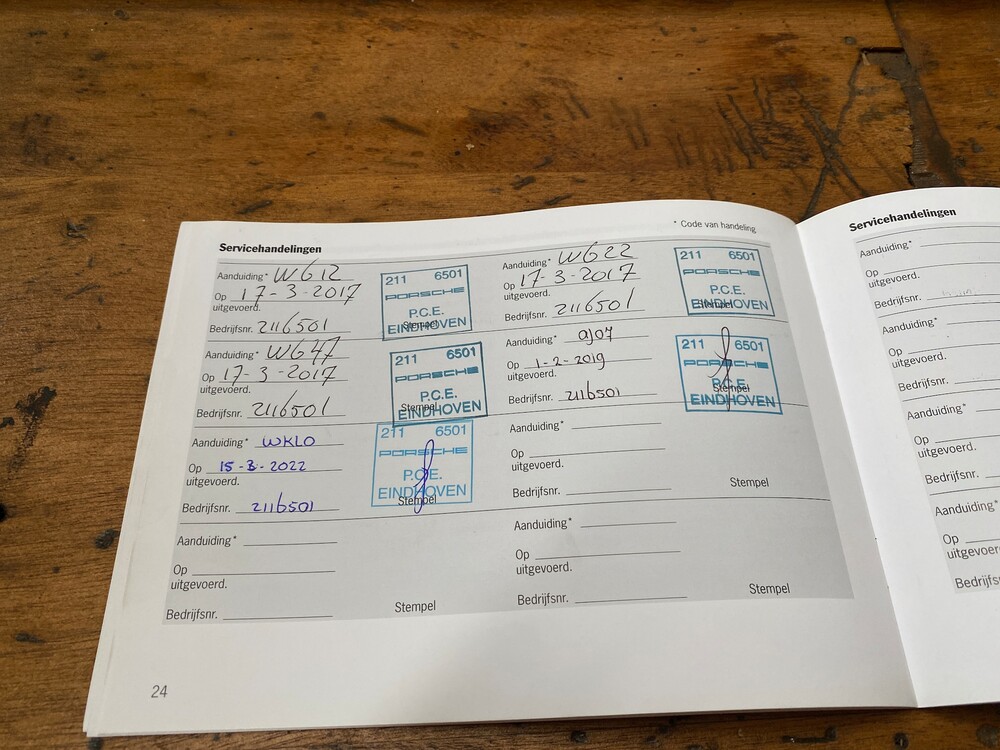 * Code van handeling
Servicehandelingen
Aanduiding* WG12
Op 17-3-2017
uitgevoerd.
Bedrijfsnr. 2116501
211 6501
PORSCHE
P.C.E.
EINDHOVEN
Stempel
Aanduiding* WG22
Op 17-3-2017
uitgevoerd.
Bedrijfsnr. 2116501
211 6501
PORSCHE
P.C.E.
EINDHOVEN
Stempel
Aanduiding* WG47
Op 17-3-2017
uitgevoerd.
Bedrijfsnr. 2116501
211 6501
PORSCHE
P.C.E.
EINDHOVEN
Stempel
Aanduiding* aj07
Op 1-2-2019
uitgevoerd.
Bedrijfsnr. 2116501
211 6501
PORSCHE
P.C.E.
EINDHOVEN
Stempel
Aanduiding* WKLO
Op 15-3-2022
uitgevoerd.
Bedrijfsnr. 2116501
211 6501
PORSCHE
P.C.E.
EINDHOVEN
Stempel
Aanduiding*
Op
uitgevoerd.
Bedrijfsnr.
Stempel
Aanduiding*
Op
uitgevoerd.
Bedrijfsnr.
Stempel
Aanduiding*
Op
uitgevoerd.
Bedrijfsnr.
Stempel
24
Servicehandelingen
Aanduiding*
Op
uitgevoerd.
Bedrijfsnr.
Aanduiding*
Op
uitgevoerd.
Bedrijfsnr.
Aanduiding*
Op
uitgevoerd.
Bedrijfsnr.
Aanduiding*
Op
uitgevoer
Bedrijfs